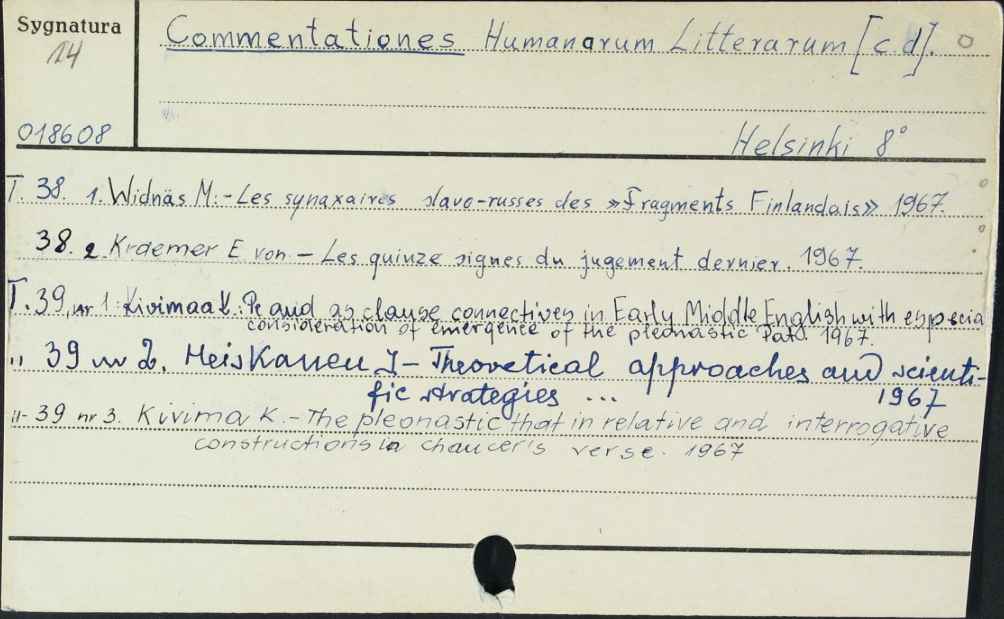 Sygnatura
14
018608
Commentationes Humanarum Litterarum [c.d].
Helsinki 8°
T. 38. 1. Widnäs M. - Les synaxaires slavo-russes des »Fragments Finlandais» 1967.
38. 2 Kraemer E von - Les quinze signes du jugement dernier. 1967.
T. 39, nr 1. Kivimaa K: Þe and as clause connectives in Early Middle English with especia
consideration of emergence of the pleonastic Þat. 1967.
" 39 nr 2. Heiskanen I - Theoretical approaches and scienti-
fic strategies ... 1967
"- 39 nr 3. Kivima K. - The pleonastic that in relative and interrogative
constructions in chaucer's verse. 1967